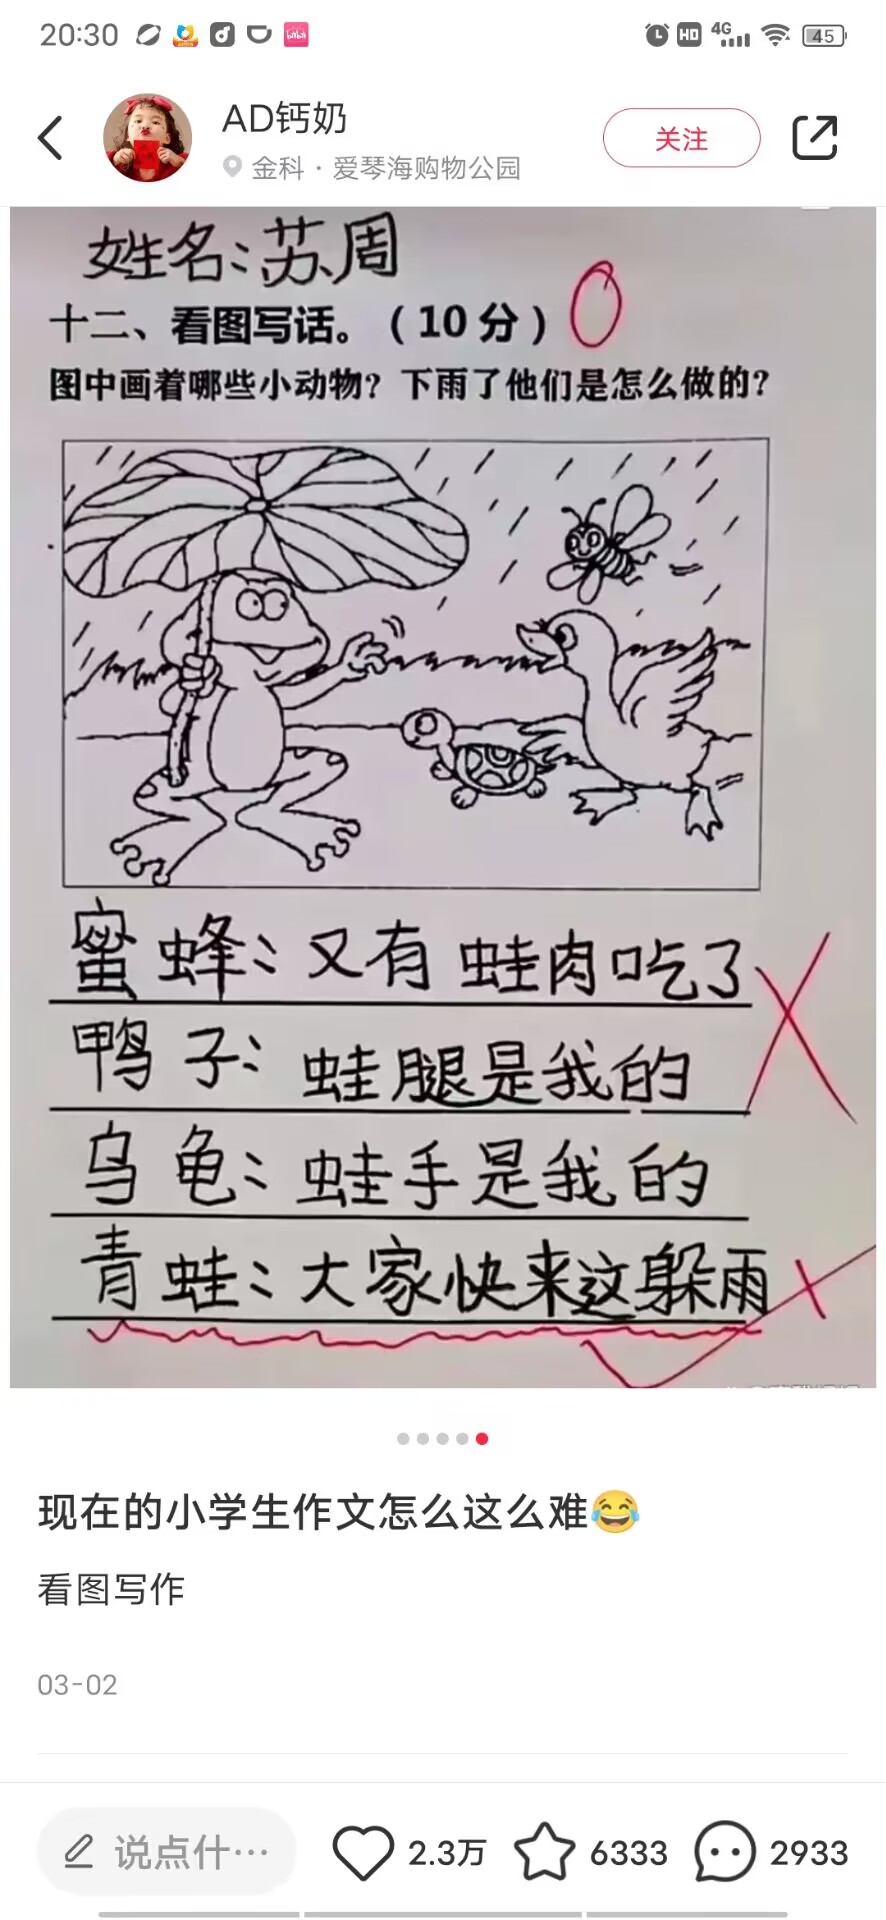 20:30
HD 4G 45
AD钙奶
金科·爱琴海购物公园
关注
姓名:苏周
十二、看图写话。(10分) 0
图中画着哪些小动物?下雨了他们是怎么做的?
蜜蜂:又有蛙肉吃了
鸭子:蛙腿是我的
乌龟:蛙手是我的
青蛙:大家快来这躲雨
现在的小学生作文怎么这么难😂
看图写作
03-02
说点什…
2.3万
6333
2933